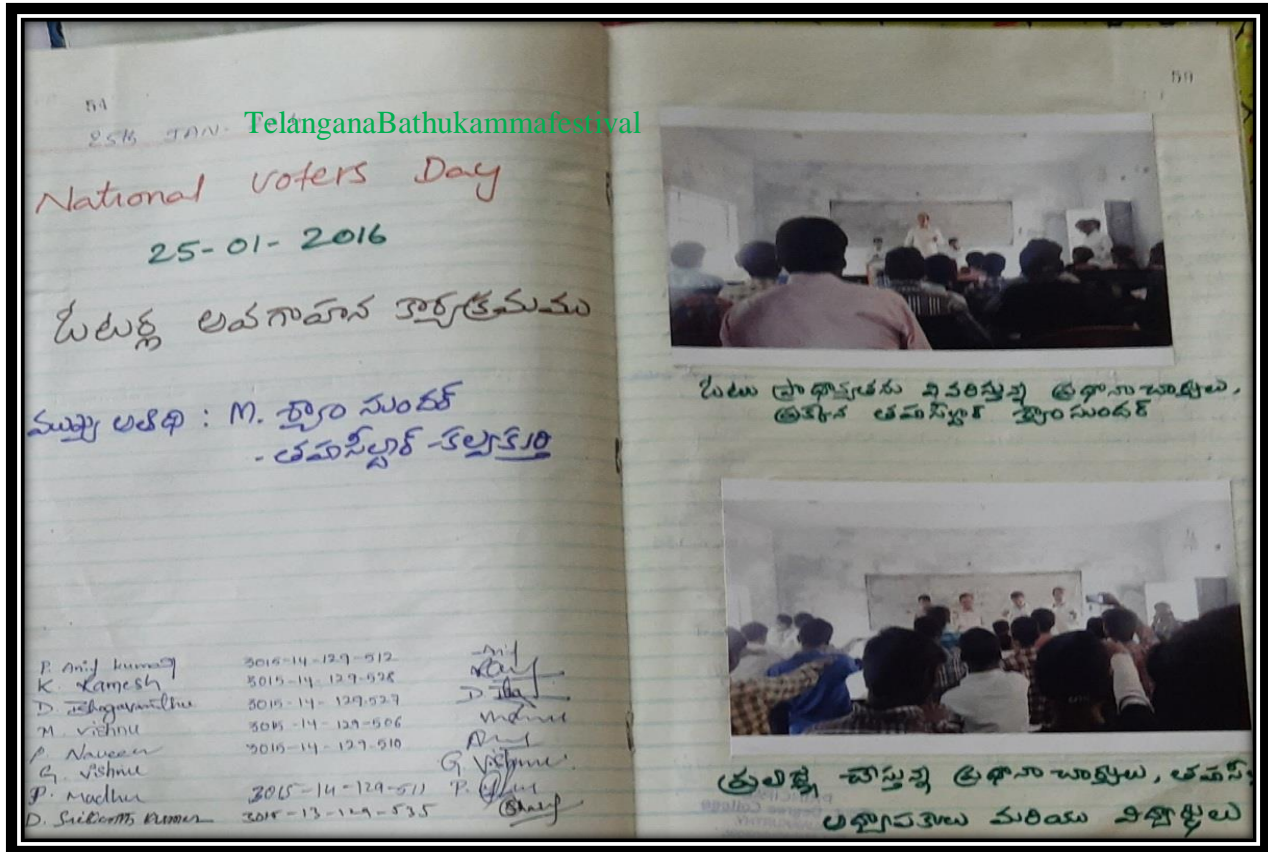 54
25th JAN-
TelanganaBathukammafestival
National Voters Day
25-01-2016
ఓటర్ల అవగాహన కార్యక్రమము
ముఖ్య అతిథి : M. శ్యాం సుందర్
- తహసీల్దార్ -కల్వకుర్తి
P. Anil kumar 3015-14-129-512
K. Ramesh 3015-14-129-528
D. 3015-14-129-527
M. Vishnu 3015-14-129-506
P. Naveen 3015-14-129-510
G. Vishnu G Vishnu
P. Madhu 3015-14-129-511
D. Srikanth Kumar 3015-13-129-535
59
ఓటు ప్రాధాన్యతను వివరిస్తున్న ప్రధానాచార్యులు,
తహసీల్దార్ శ్యాం సుందర్
ప్రతిజ్ఞ చేస్తున్న ప్రధానాచార్యులు, తహసీ
అధ్యాపకులు మరియు విద్యార్థులు